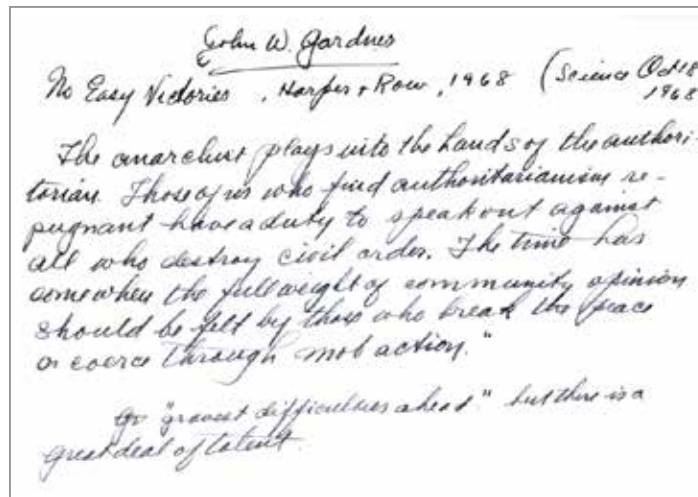 John W. Gardner
No Easy Victories, Harper + Row, 1968 (Science Oct 18
1968
The anarchist plays into the hands of the authori-
tarian. Those of us who find authoritarianism re-
pugnant have a duty to speak out against
all who destroy civil order. The time has
come when the full weight of community opinion
should be felt by those who break the peace
or coerce through mob action."
"gravest difficulties ahead" but there is a
great deal of talent.